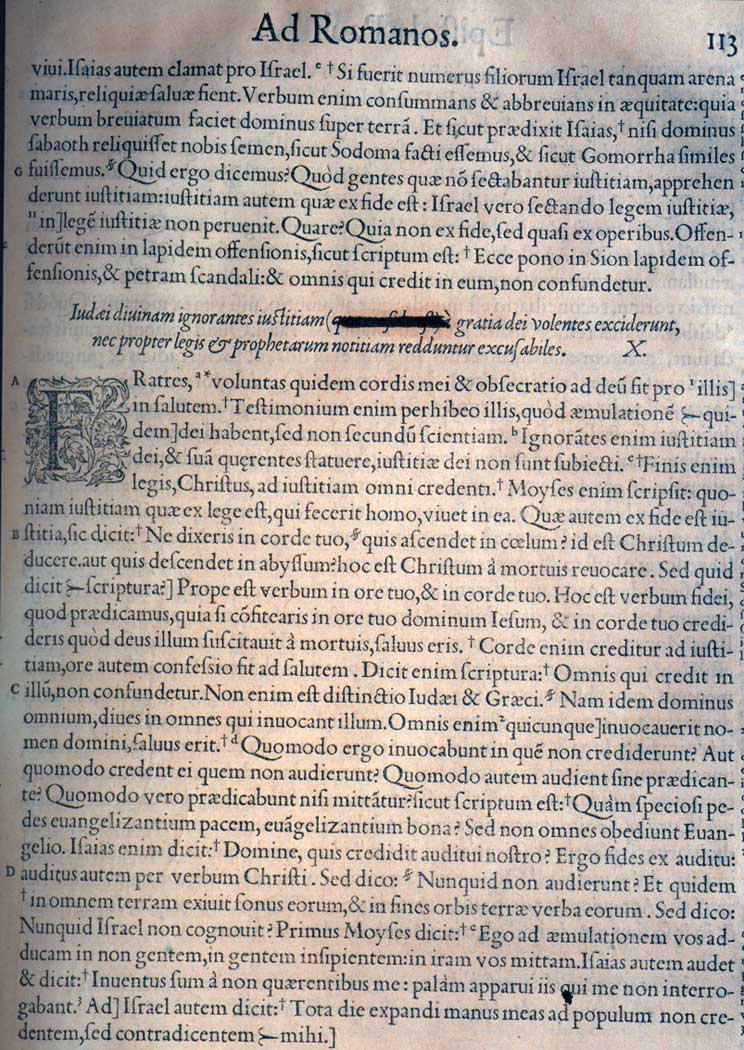 Ad Romanos. 113
viui. Isaias autem clamat pro Israel. ᵉ †Si fuerit numerus filiorum Israel tanquam arena
maris, reliquiæ saluæ fient. Verbum enim consummans & abbreuians in æquitate: quia
verbum breuiatum faciet dominus super terrā. Et sicut prædixit Isaias, †nisi dominus
sabaoth reliquisset nobis semen, sicut Sodoma facti essemus, & sicut Gomorrha similes
G fuissemus. Quid ergo dicemus? Quòd gentes quæ nō sectabantur iustitiam, apprehen
derunt iustitiam: iustitiam autem quæ ex fide est: Israel vero sectando legem iustitiæ,
"in] legē iustitiæ non peruenit. Quare? Quia non ex fide, sed quasi ex operibus. Offen-
derūt enim in lapidem offensionis, sicut scriptum est: †Ecce pono in Sion lapidem of-
fensionis, & petram scandali: & omnis qui credit in eum, non confundetur.
Iudæi diuinam ignorantes iustitiam ( gratia dei volentes exciderunt,
nec propter legis & prophetarum notitiam redduntur excusabiles. X.
A FRatres, ᵃ*voluntas quidem cordis mei & obsecratio ad deū fit pro ˡillis]
in salutem. †Testimonium enim perhibeo illis, quòd æmulationē ⸓qui-
dem] dei habent, sed non secundū scientiam. ᵇIgnorātes enim iustitiam
dei, & suā quęrentes statuere, iustitiæ dei non sunt subiecti. ᶜ †Finis enim
legis, Christus, ad iustitiam omni credenti. †Moyses enim scripsit: quo-
niam iustitiam quæ ex lege est, qui fecerit homo, viuet in ea. Quæ autem ex fide est iu-
B stitia, sic dicit: †Ne dixeris in corde tuo, quis ascendet in cœlum? id est Christum de-
ducere. aut quis descendet in abyssum? hoc est Christum à mortuis reuocare. Sed quid
dicit ⸓scriptura?] Prope est verbum in ore tuo, & in corde tuo. Hoc est verbum fidei,
quod prædicamus, quia si cōfitearis in ore tuo dominum Iesum, & in corde tuo credi-
deris quòd deus illum suscitauit à mortuis, saluus eris. †Corde enim creditur ad iusti-
tiam, ore autem confessio fit ad salutem. Dicit enim scriptura: †Omnis qui credit in
C illū, non confundetur. Non enim est distinctio Iudæi & Græci. Nam idem dominus
omnium, diues in omnes qui inuocant illum. Omnis enim ²quicunque] inuocauerit no-
men domini, saluus erit. † ᵈQuomodo ergo inuocabunt in quē non crediderunt? Aut
quomodo credent ei quem non audierunt? Quomodo autem audient sine prædican-
te? Quomodo vero prædicabunt nisi mittātur? sicut scriptum est: †Quàm speciosi pe-
des euangelizantium pacem, euāgelizantium bona? Sed non omnes obediunt Euan-
gelio. Isaias enim dicit: †Domine, quis credidit auditui nostro? Ergo fides ex auditu:
D auditus autem per verbum Christi. Sed dico: Nunquid non audierunt? Et quidem
†in omnem terram exiuit sonus eorum, & in fines orbis terræ verba eorum. Sed dico:
Nunquid Israel non cognouit? Primus Moyses dicit: † ᵉEgo ad æmulationem vos ad-
ducam in non gentem, in gentem insipientem: in iram vos mittam. Isaias autem audet
& dicit: †Inuentus sum à non quærentibus me: palàm apparui iis qui me non interro-
gabant. ³Ad] Israel autem dicit: †Tota die expandi manus meas ad populum non cre-
dentem, sed contradicentem ⸓mihi.]